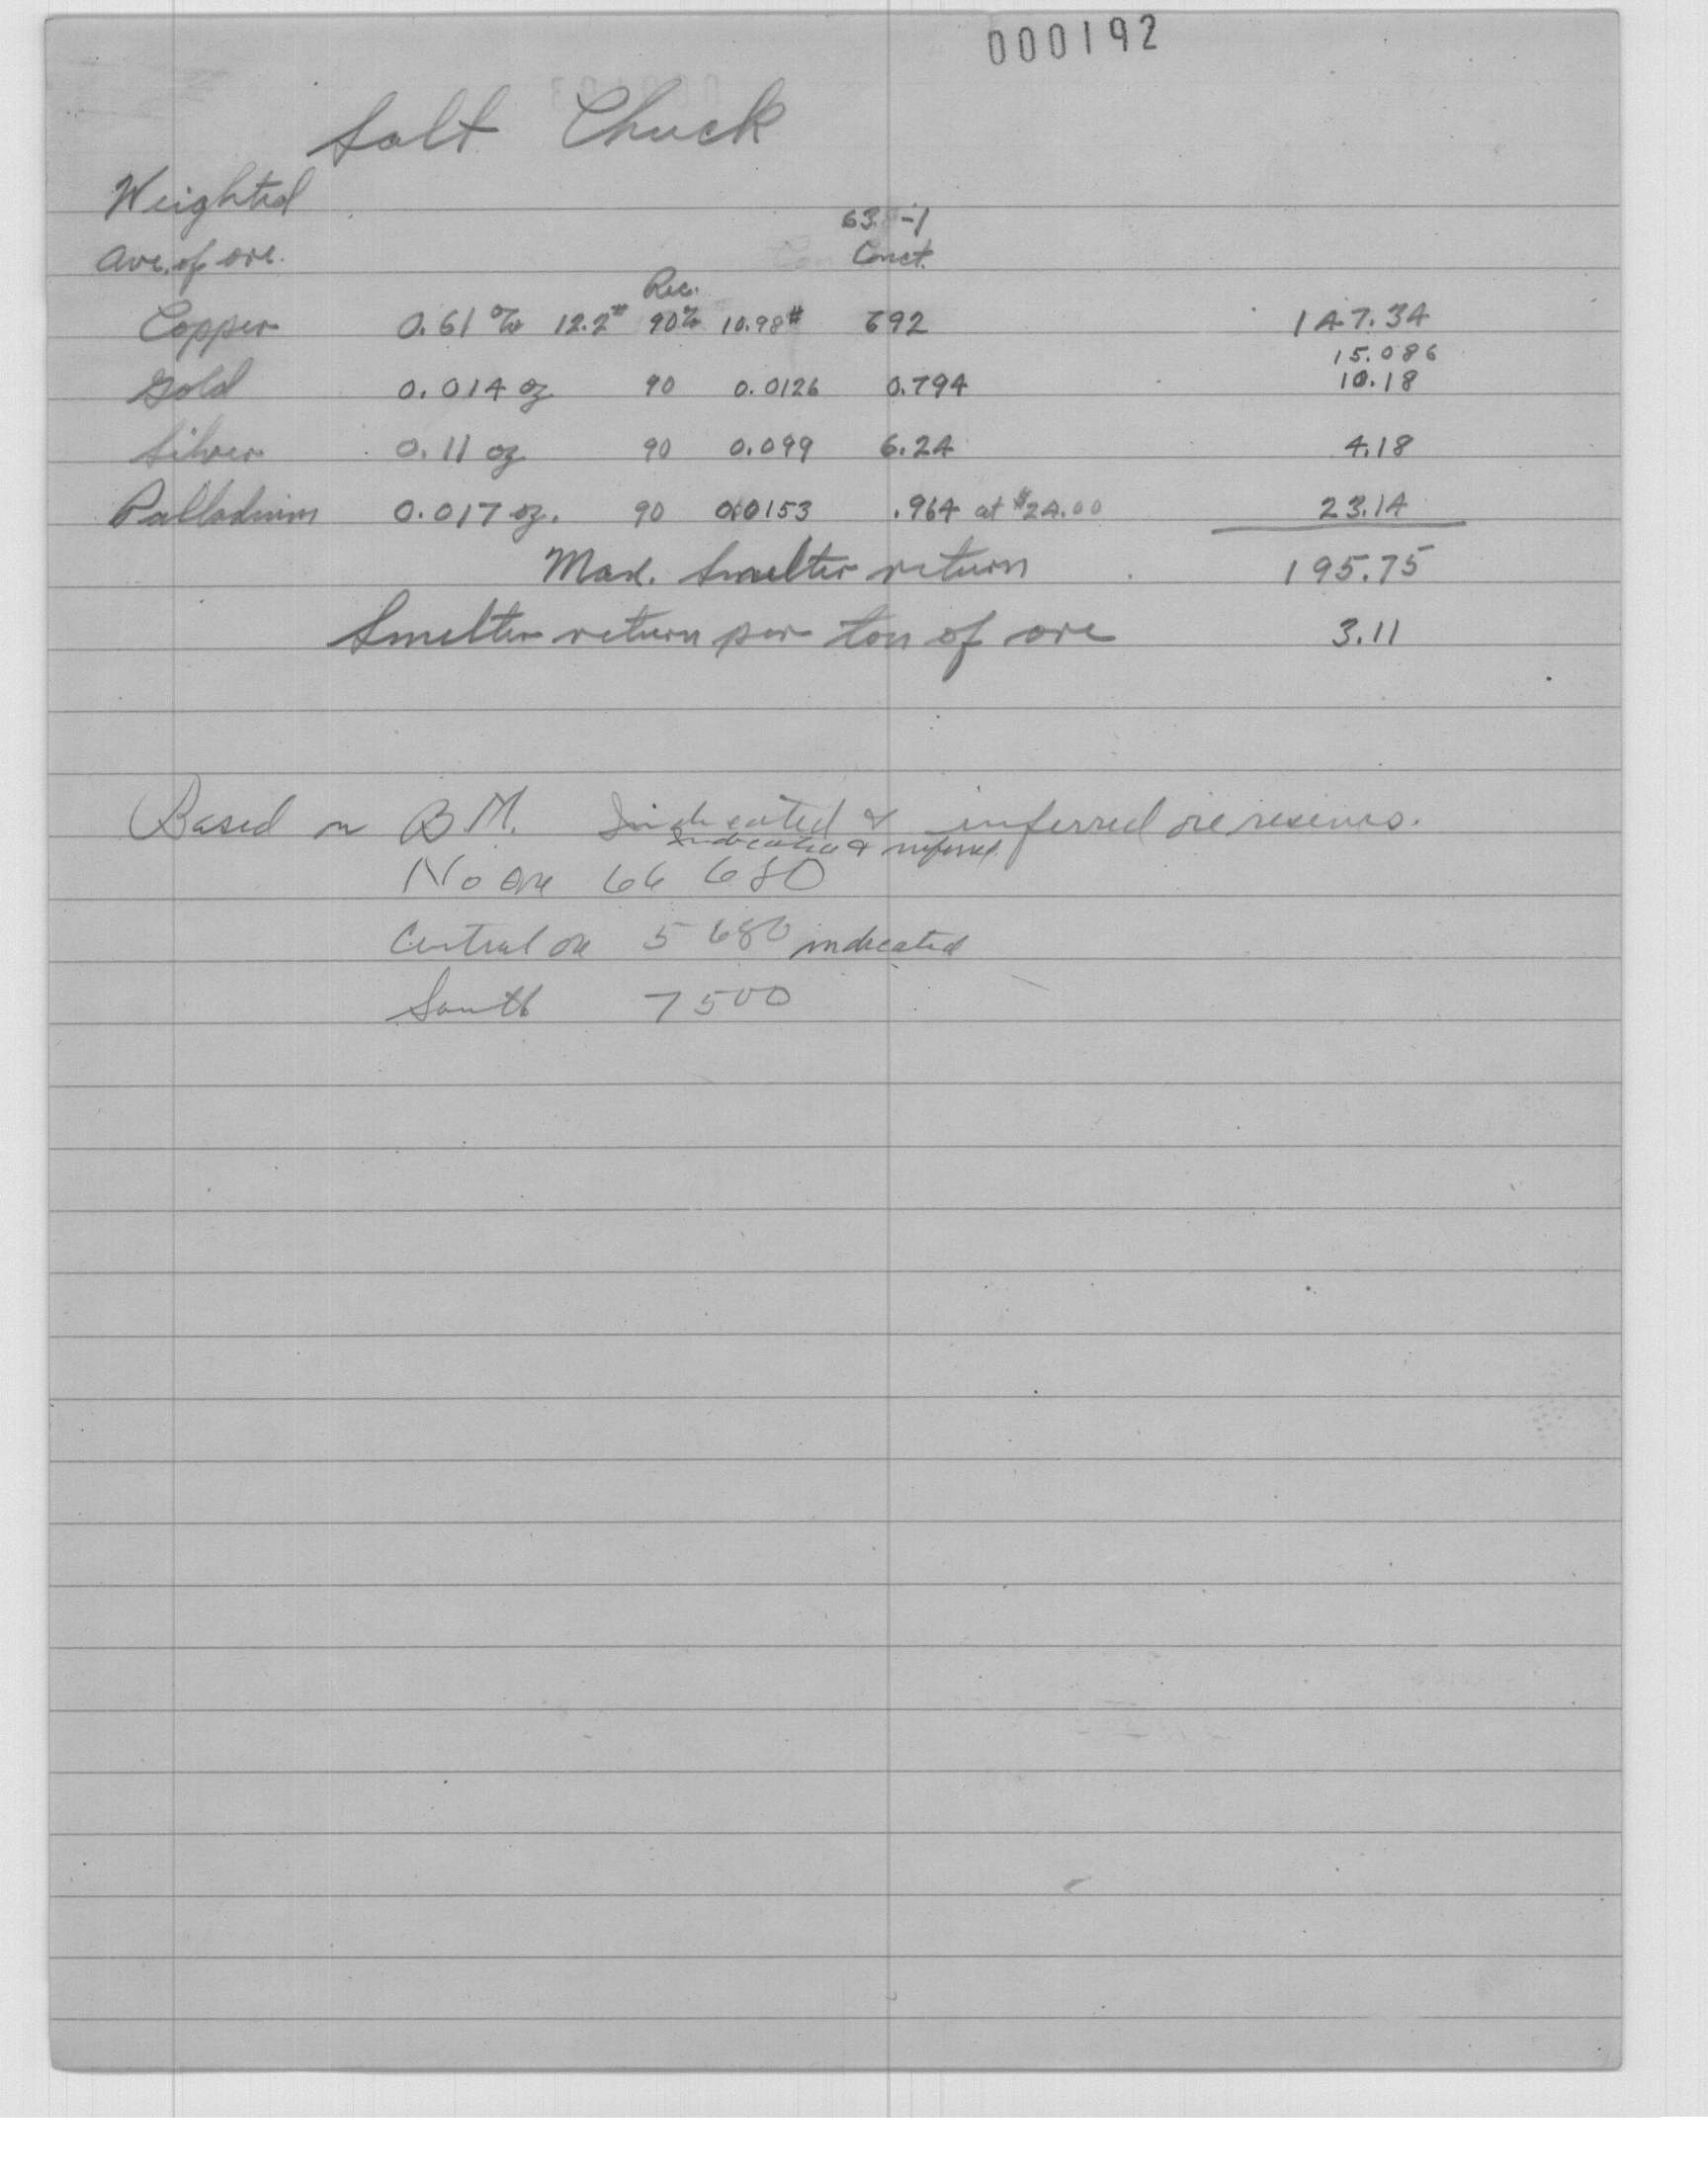 000192
Salt Chuck
Weighted
63 -1
Ave. of ore.
Conct.
Rec.
Copper 0.61 % 12.2# 90% 10.98# 692 147.34
15.086
Gold 0.014 oz 90 0.0126 0.794 10.18
Silver 0.11 oz 90 0.099 6.24 4.18
Palladium 0.017 oz. 90 0.0153 .964 at $24.00 23.14
Max. Smelter return 195.75
Smelter return per ton of ore 3.11
Based on B M. Indicated & inferred ore reserves.
Indicated & inferred
No ore 66 680
Central ore 5 680 indicated
South 7500